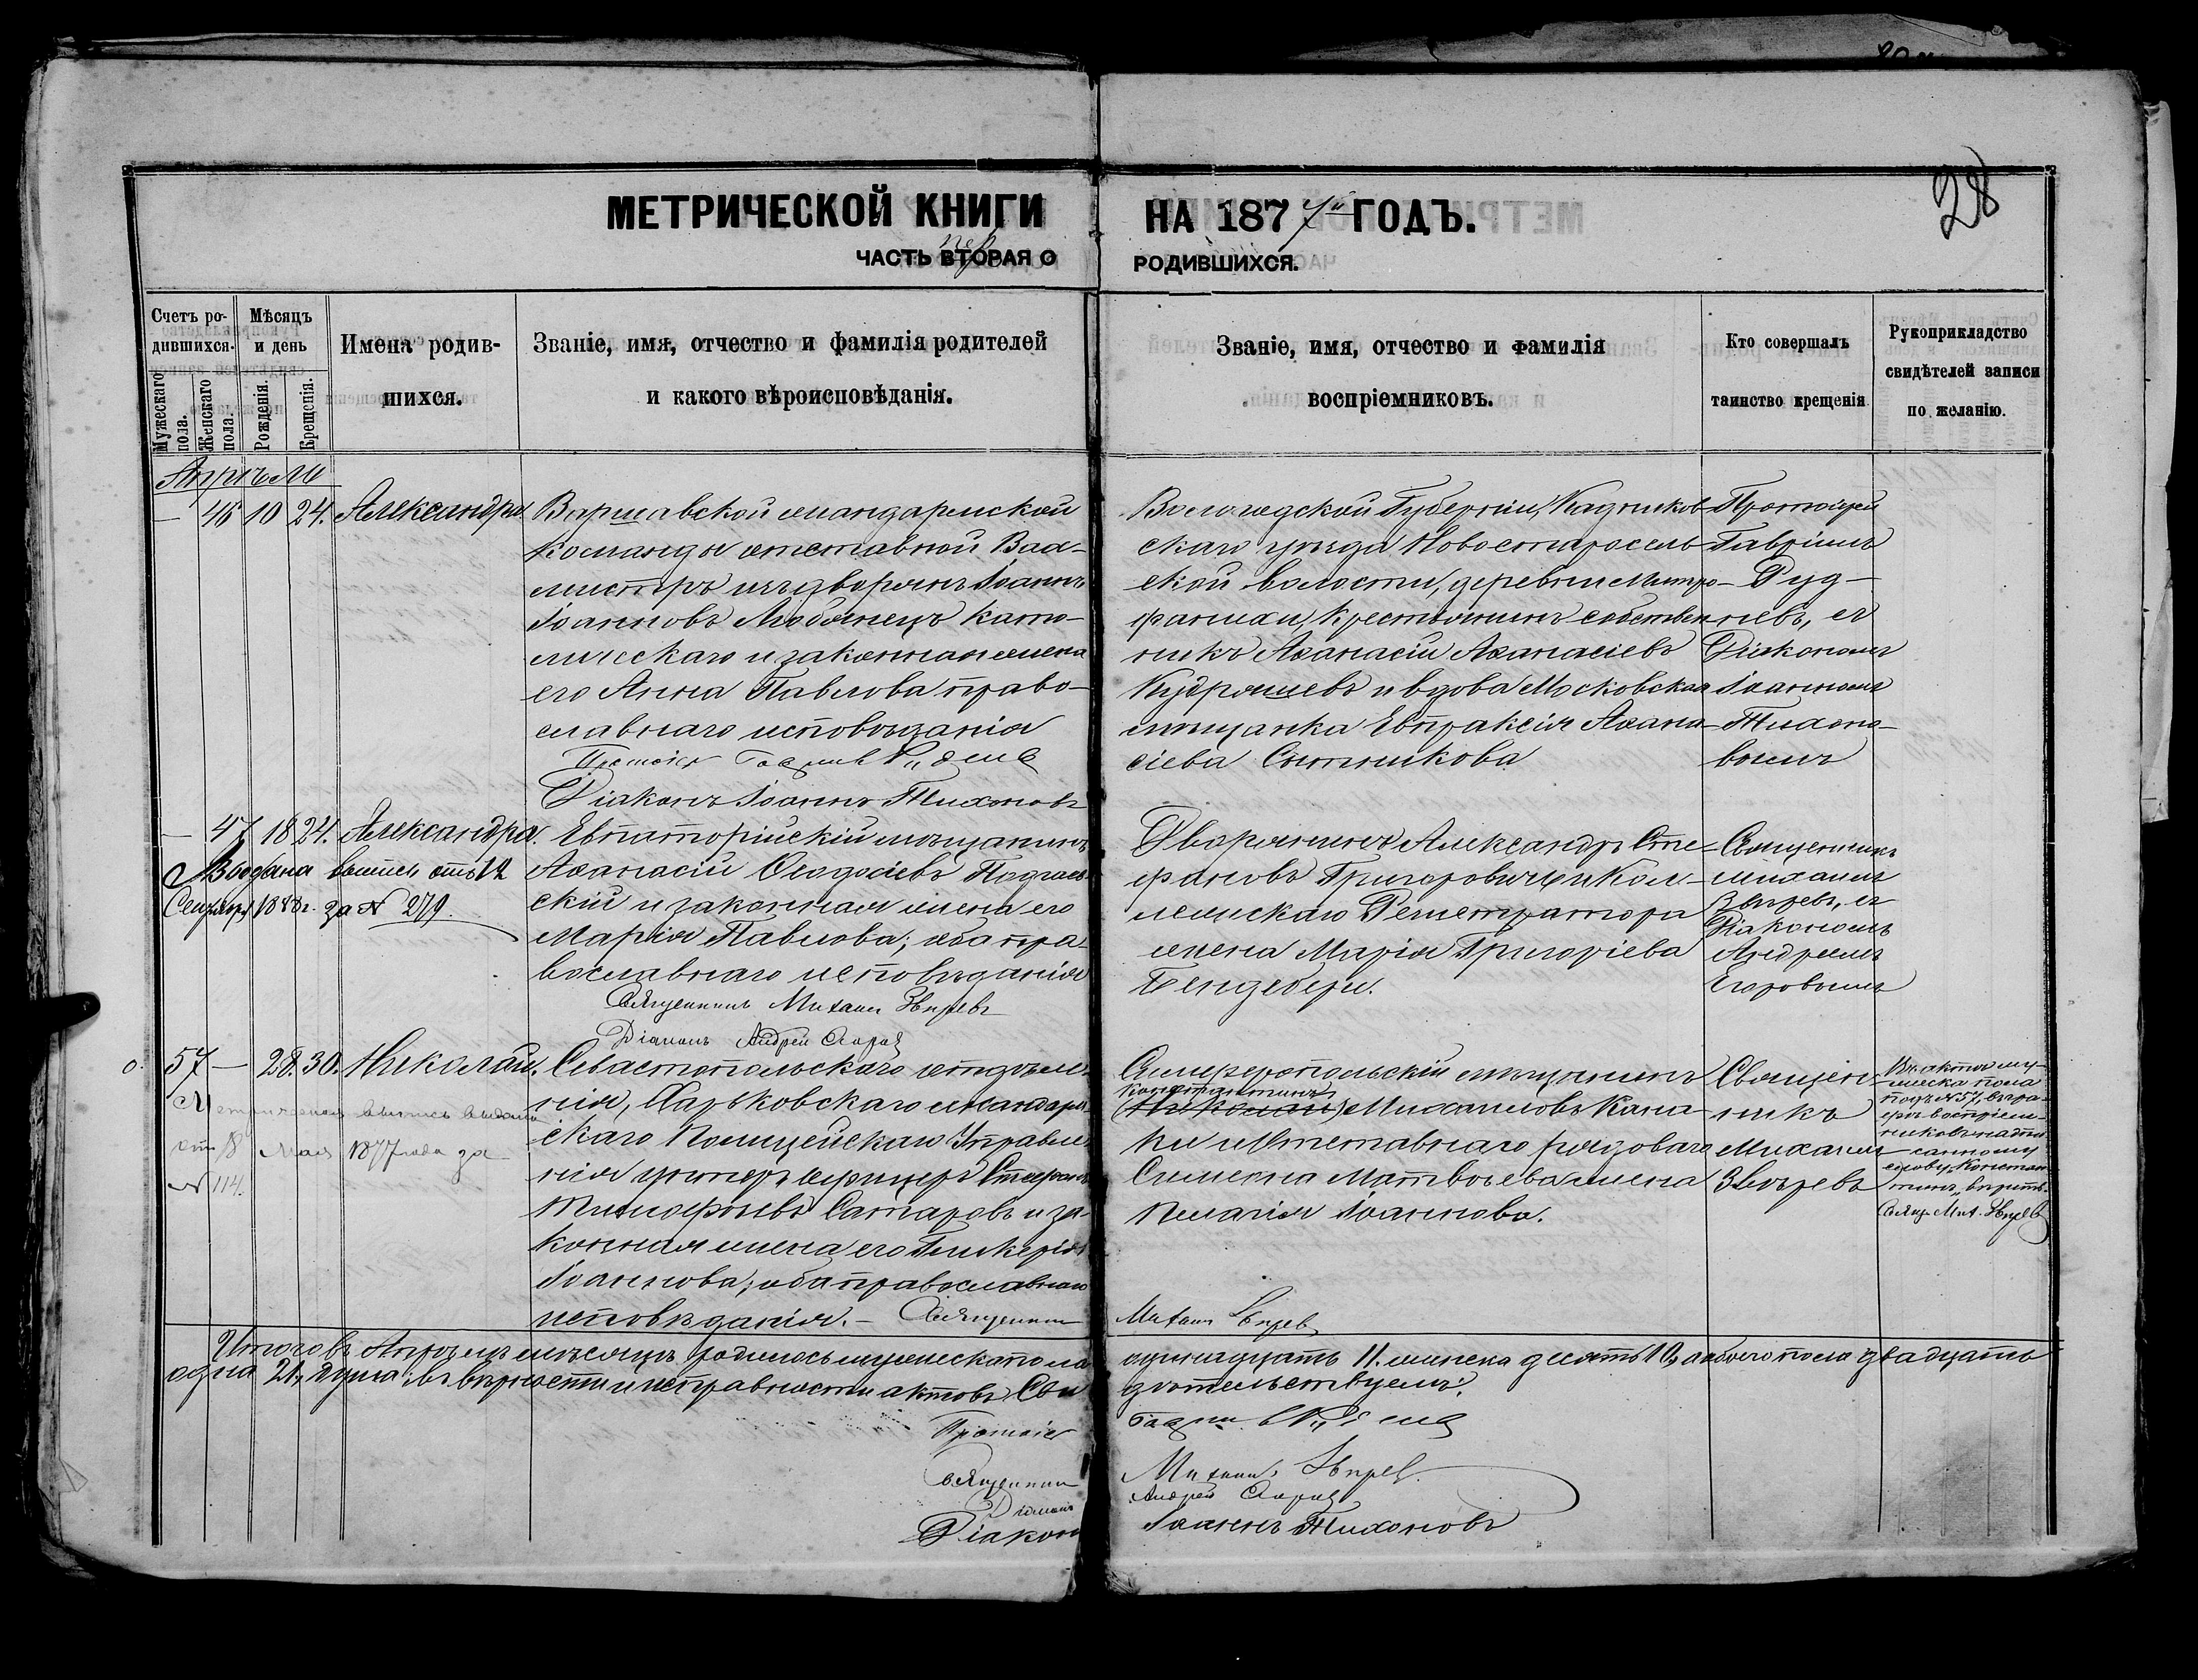 28
МЕТРИЧЕСКОЙ КНИГИ НА 1877й ГОДЪ.
пер
ЧАСТЬ ВТОРАЯ О РОДИВШИХСЯ.
Счетъ родившихся.
Мужескаго пола.
Женскаго пола.
Мѣсяцъ и день
Рожденія.
Крещенія.
Имена родившихся.
Званіе, имя, отчество и фамилія родителей
и какого вѣроисповѣданія.
Званіе, имя, отчество и фамилія
воспріемниковъ.
Кто совершалъ
таинство крещенія
Рукоприкладство
свидѣтелей записи
по желанію.
Апрѣль
— 46 10 24. Александра.
Варшавской жандармской
команды отставной Вах-
мистръ изъ дворянъ Іоаннъ
Іоанновъ Любянецъ като-
лическаго и законная жена
его Анна Павлова право-
славнаго исповѣданія
Протоіер Гавриил Руднев
Діаконъ Іоаннъ Тихоновъ
Вологодской Губерніи, Кадников-
скаго уѣзда Новостаросель-
ской волости, деревни Митро-
фанихи, крестьянинъ собствен-
никъ Аѳанасій Аѳанасіевъ
Кудряшевъ и вдова Московская
мѣщанка Евпраксія Аѳана-
сіева Сытникова
Протоіерей
Гавріилъ
Руд-
невъ, съ
Діакономъ
Іоанномъ
Тихоно-
вымъ
— 47 18 24. Александра.
Выдана выпись отъ 12
Сентяб. 1888 г. за № 279.
Евпаторійскій мѣщанинъ
Аѳанасій Ѳеодосіевъ
скій и законная жена его
Марія Павлова; оба пра-
вославнаго исповѣданія
Священникъ Михаилъ Звѣревъ
Діаконъ Андрей Егоров
Дворянинъ Александръ Сте-
фановъ Григоровичъ и Кол-
лежскаго Регистратора
жена Марія Григоріева
Бендебери.
Священникъ
Михаилъ
Звѣревъ, съ
Діакономъ
Андреемъ
Егоровымъ
57 — 28. 30. Николай.
Метрическая выпись выдана
отъ 18 Мая 1877 года за
№ 114.
Севастопольскаго отдѣле-
нія, Харьковскаго жандарм-
скаго Полицейскаго Управле-
нія унтеръ офицеръ Стефанъ
Тимофѣевъ Сатаровъ и за-
конная жена его Гликерія
Іоаннова; оба православнаго
исповѣданія. — Священникъ Михаил Звѣрев
Симферопольскій мѣщанинъ
Константинъ
(Николай) Михаиловъ Кана-
ки и Отставнаго рядоваго
Симеона Матвѣева жена
Пелагія Іоаннова.
Священ-
никъ
Михаилъ
Звѣревъ
Въ актѣ му-
жеска пола
подъ № 57, въ гра-
фѣ воспріем-
никовъ надпи-
санному
слову „Констан-
тинъ„ вѣрить.
Свящ. Мих. Звѣрев
Итого въ Апрѣлѣ мѣсяцѣ родилось мужеска пола одиннадцать 11. женска десять 10, а обоего пола двадцать
одна 21, душа; въ вѣрности и исправности актовъ Свидѣтельствуемъ:
Протоіер Гавриил Руднев
Священникъ Михаилъ Звѣрев.
Діаконъ Андрей Егоров
Діаконъ Іоаннъ Тихоновъ